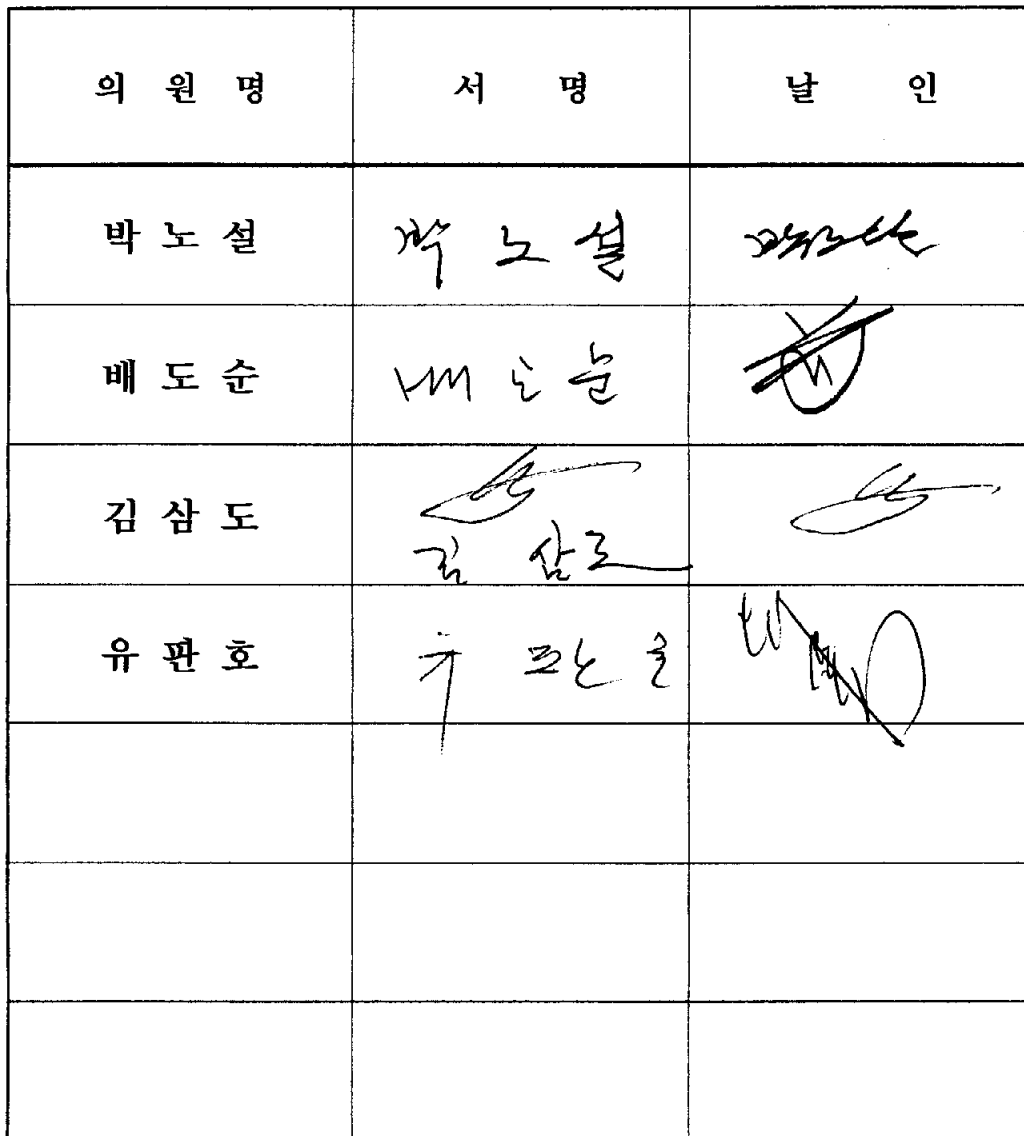 의 원 명 서 명 날 인
박 노 설 박 노 설
배 도 순 배 도 순
김 삼 도
김 삼 도
유 판 호 유 판 호